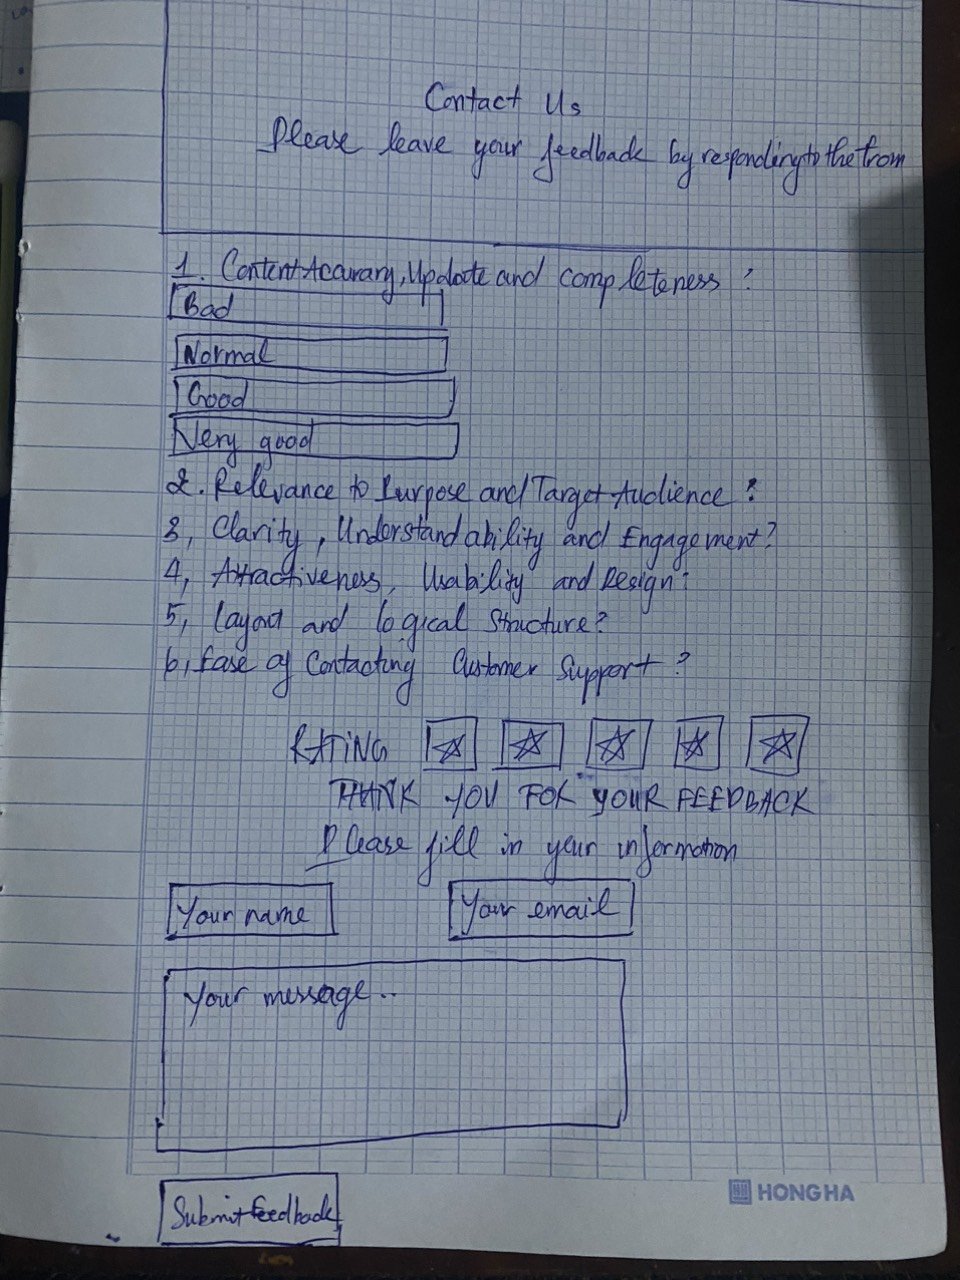 Contact Us
Please leave your feedback by responding to the from
1. Content Accurary, Update and completeness ?
Bad
Normal
Good
Very good
2. Relevance to Purpose and Target Audience ?
3, Clarity, Understandability and Engagement?
4, Attractiveness, Usability and Design?
5, Layout and logical Structure?
6, Ease of Contacting Customer Support ?
RATING
THANK YOU FOR YOUR FEEDBACK
Please fill in your information
Your name Your email
Your message..
HONG HA
Submit feedback